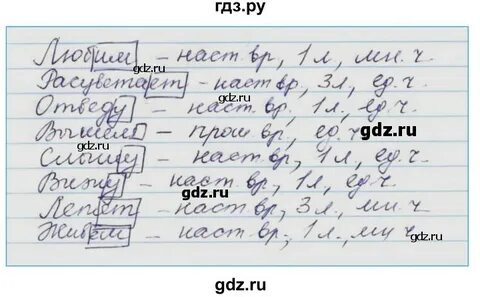 гдз.ру
Любим – наст. вр, 1 л, мн. ч.
Расцветает – наст. вр, 3л, ед. ч.
Отведу – наст. вр, 1л, ед. ч.
Вышел – прош вр, ед. ч
gdz.ru
gdz.ru
Слышу – наст. вр, 1л, ед. ч.
Вижу – наст. вр, 1л, ед. ч.
gdz.ru
Летят – наст. вр, 3 л, мн. ч
Живём – наст. вр, 1л, мн ч
gdz.ru
gdz.ru